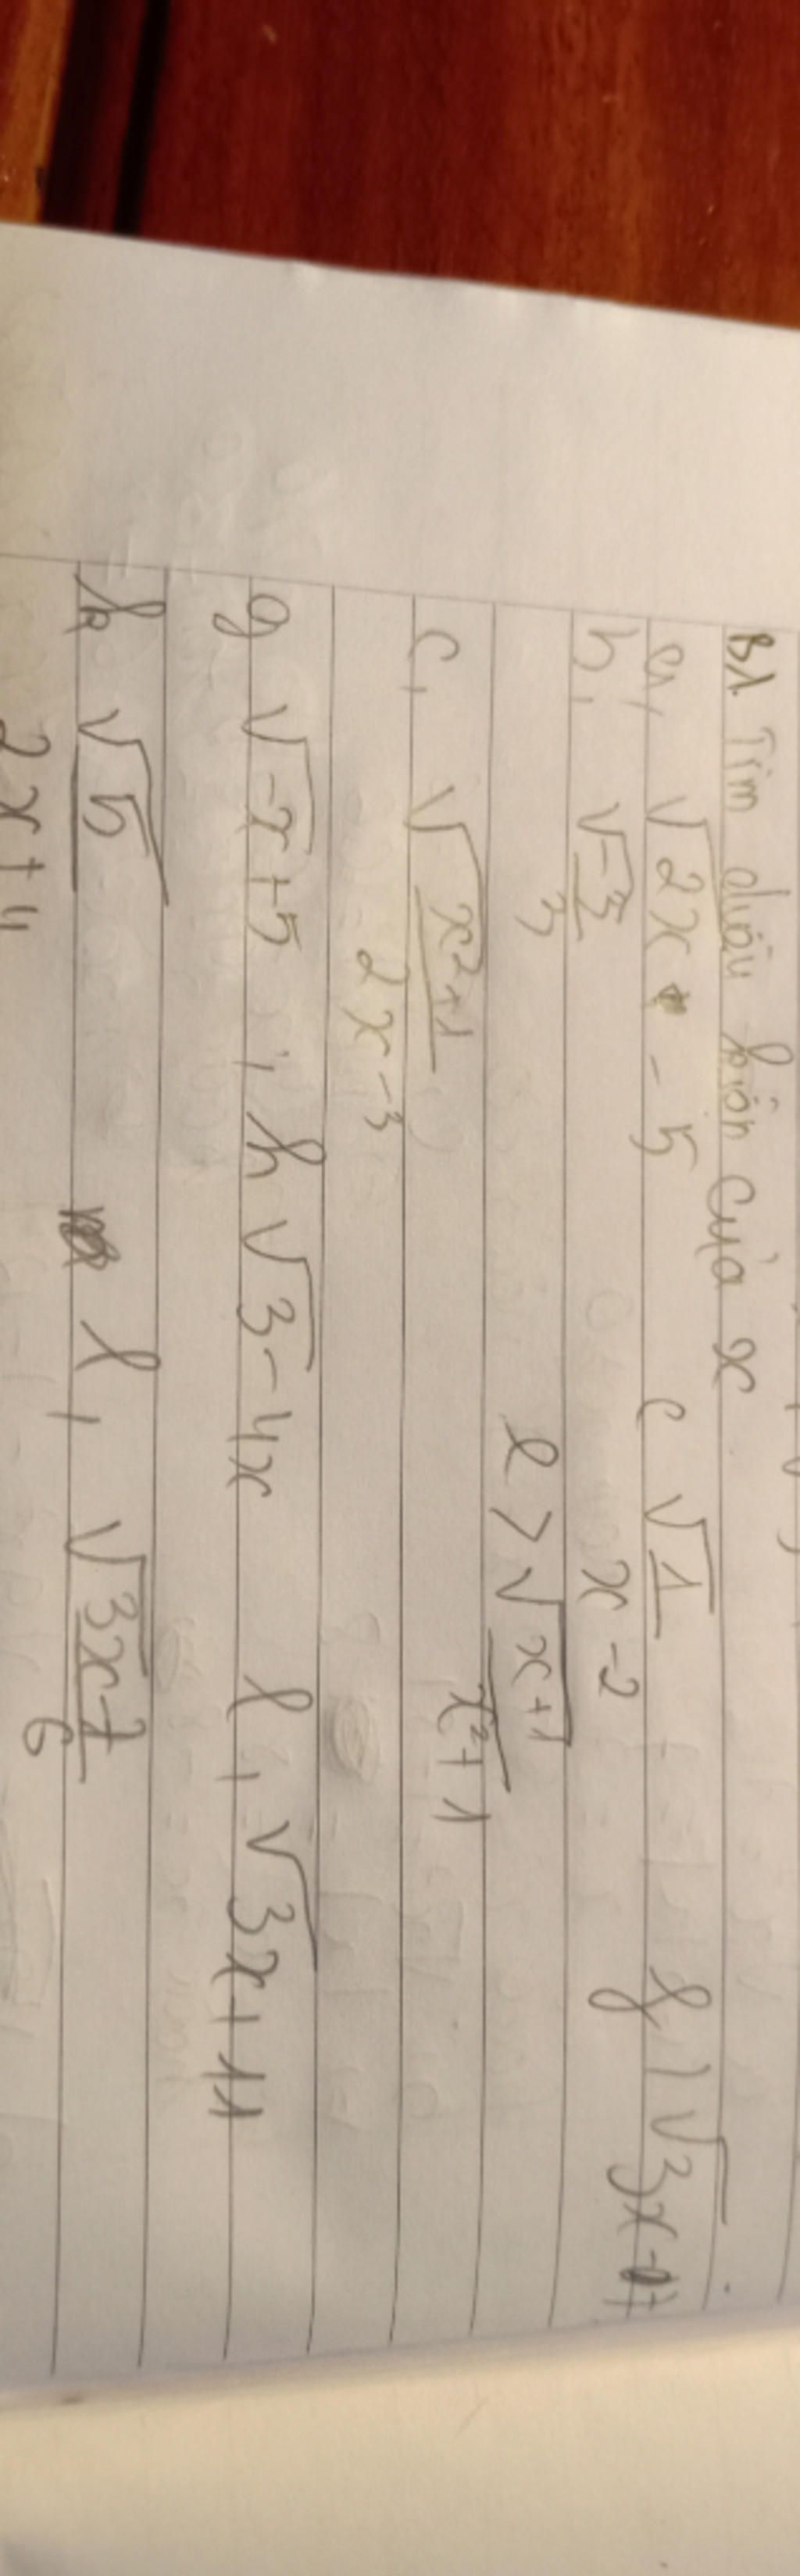 B1. Tìm điều kiện của x
a, √2x - 5 c √1/x-2 f, √3x-7
b, √-3/3
e > √x+1/x²+1
c, √x²+1/2x-3
g √-x+5 , h √3-4x l, √3x+11
k √5/2x+4 l, √3x-7/6